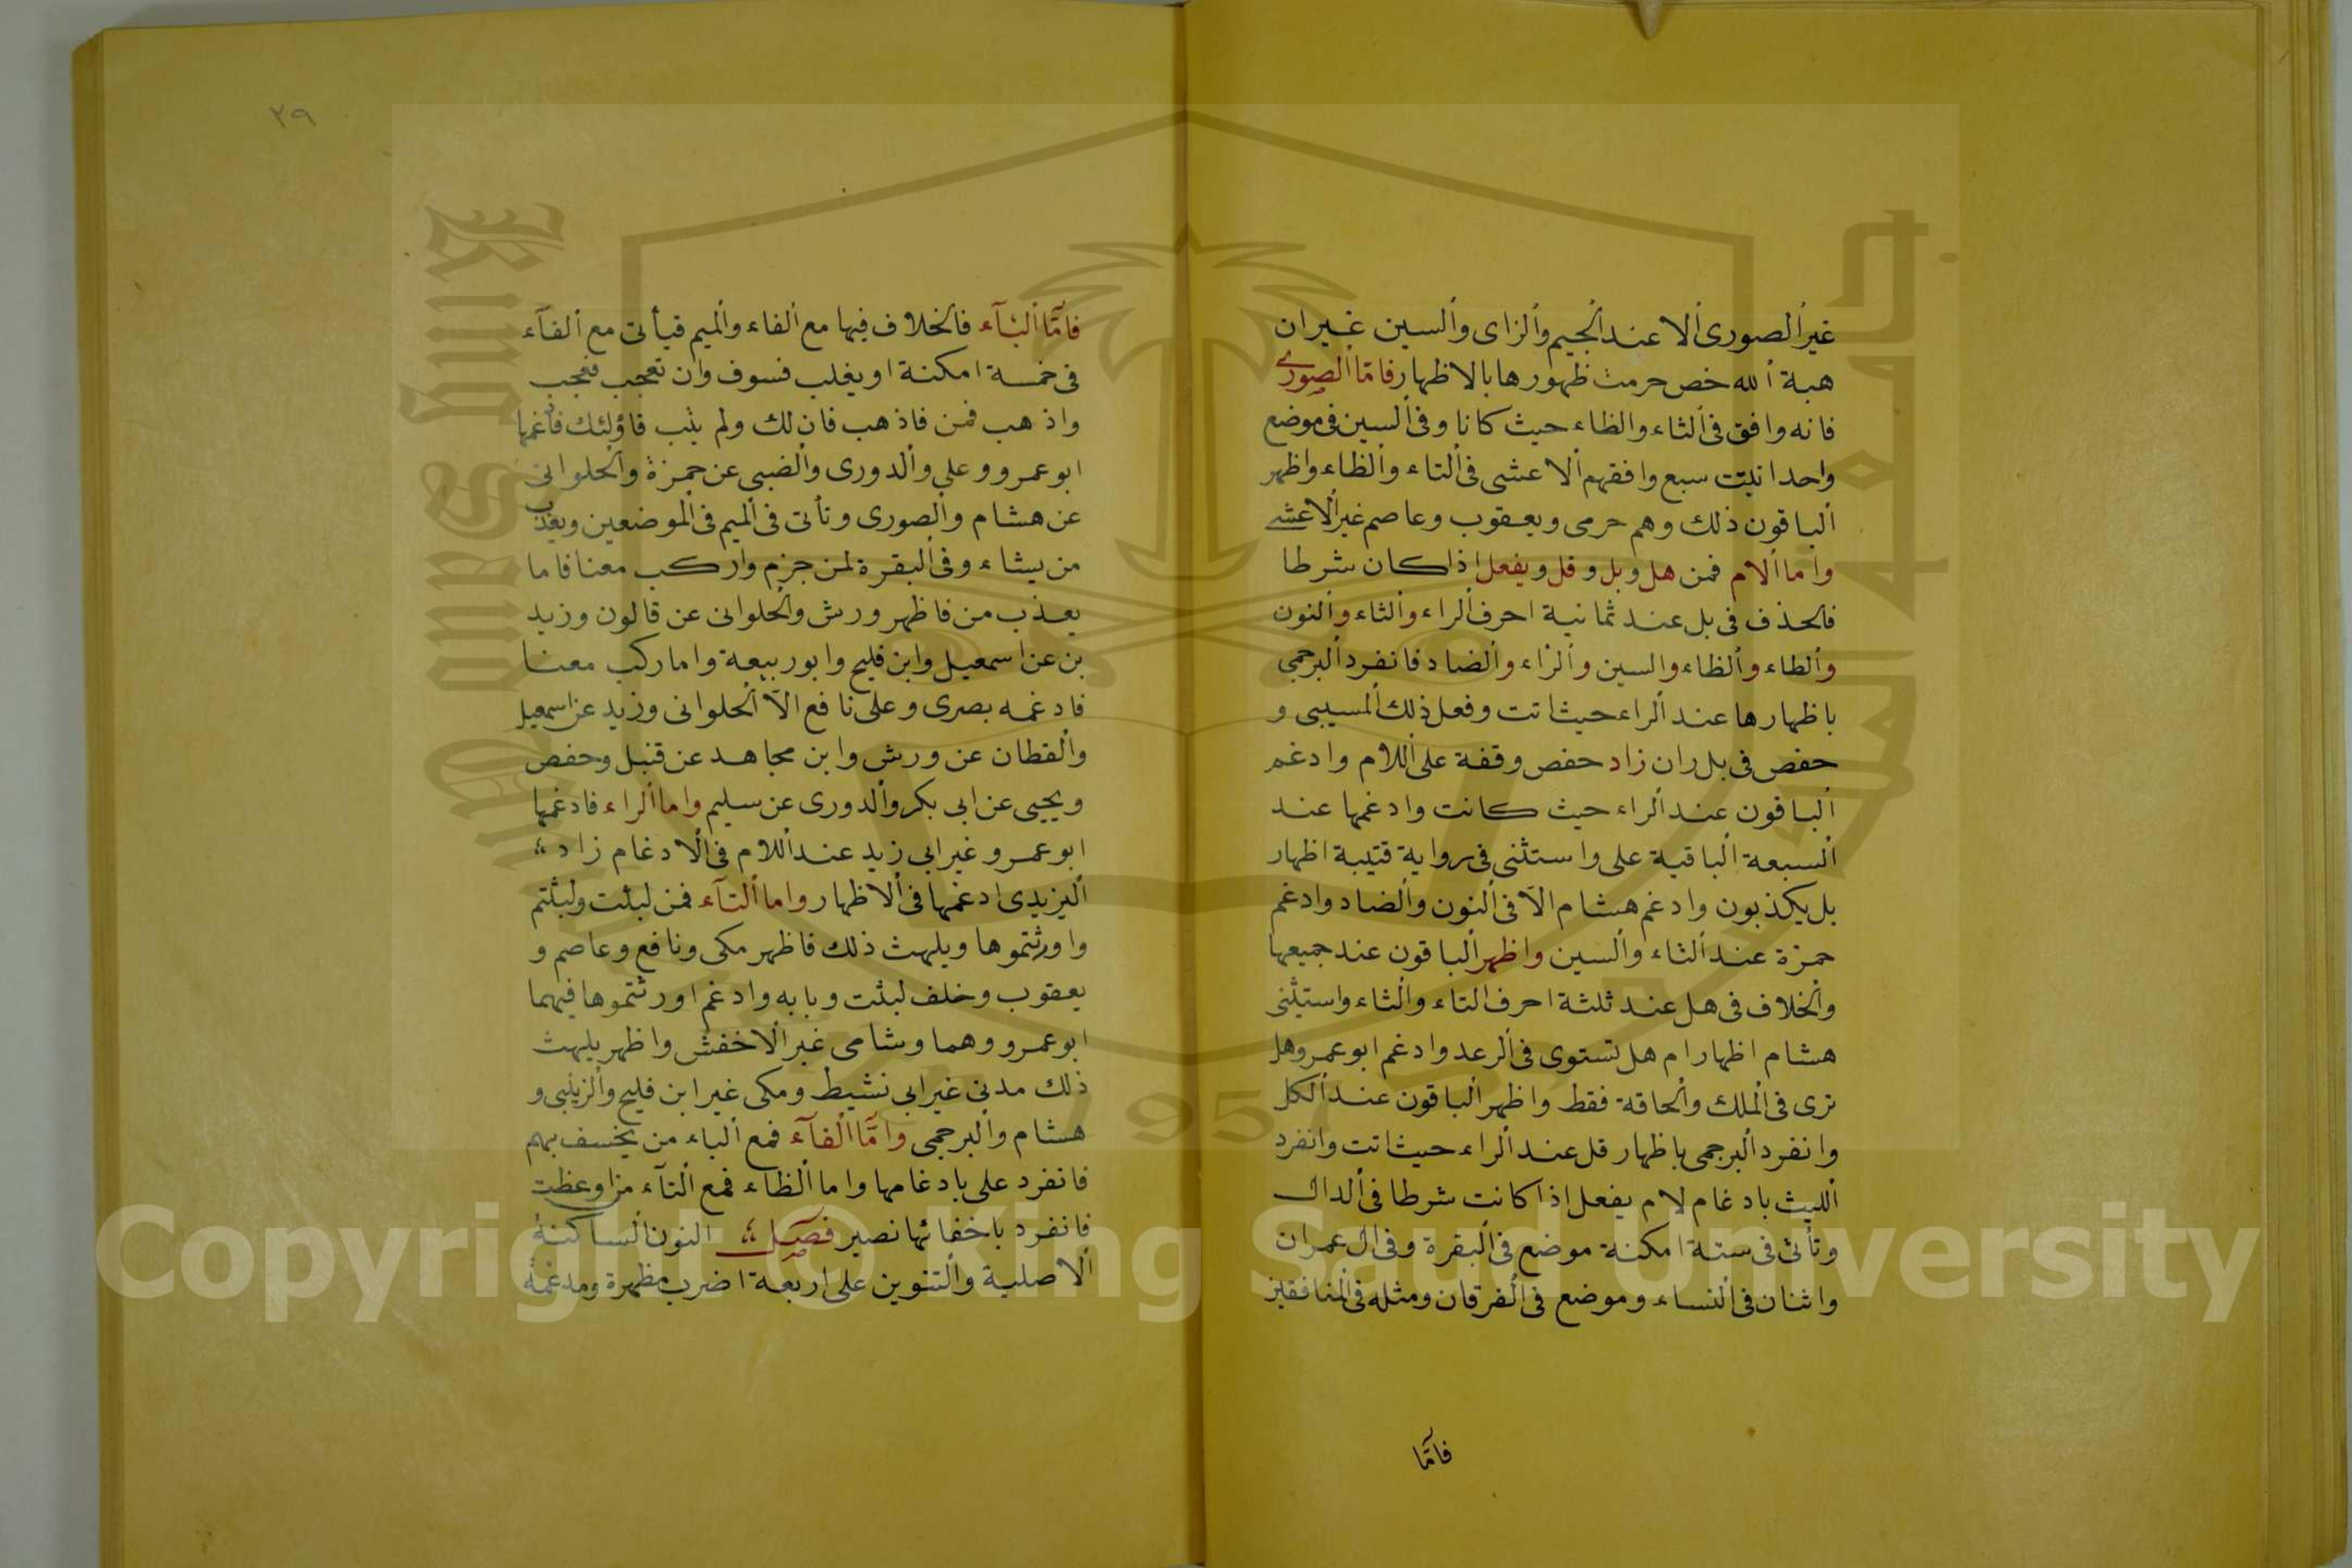 غير الصورى الا عند الجيم والزاى والسين غير ان
هبة الله خص حرمت ظهورها بالاظهار فامّا الصورى
فانه وافق فى الثاء والظاء حيث كانا وفى السين فى موضع
واحد انبتت سبع وافقهم الاعشى فى التاء والظاء واظهر
الباقون ذلك وهم حرمى ويعقوب وعاصم غير الاعشى
واما الام فمن هل وبل وقل ويفعل اذا كان شرطا
فالحذف فى بل عند ثمانية احرف الراء والثاء والنون
والطاء والظاء والسين والزاء والضاد فانفرد البرجمى
باظهارها عند الراء حيث اتت وفعل ذلك المسيبى و
حفص فى بل ران زاد حفص وقفة على اللام وادغم
الباقون عند الراء حيث كانت وادغمها عند
السبعة الباقية على واستثنى فى رواية قتيبة اظهار
بل يكذبون وادغم هشام الّا فى النون والضاد وادغم
حمزة عند الثاء والسين واظهر الباقون عند جميعها
والخلاف فى هل عند ثلثة احرف التاء والثاء واستثنى
هشام اظهار ام هل تستوى فى الرعد وادغم ابو عمرو هل
ترى فى الملك والحاقة فقط واظهر الباقون عند الكل
وانفرد البرجمى باظهار قل عند الراء حيث اتت وانفرد
الليث بادغام لام يفعل اذا كانت شرطا فى الدال
وتأتى فى ستة امكنة موضع فى البقرة وفى ال عمران
واثنان فى النساء وموضع فى الفرقان ومثله فى المنافقين
فامّا
٢٩
فامّا البآء فالخلاف فيها مع الفاء والميم فيأتى مع الفآء
فى خمسة امكنة او يغلب فسوف وان تعجب فعجب
واذهب فمن فاذهب فان لك ولم يتب فاولئك فادغمها
ابو عمرو وعلى والدورى والضبى عن حمزة والحلوانى
عن هشام والصورى وتأتى فى الميم فى الموضعين ويعذب
من يشاء وفى البقرة لمن جزم واركب معنا فاما
يعذب من فاظهر ورش والحلوانى عن قالون وزيد
بن عن اسمعيل وابن فليح وابو ربيعة واما ركب معنا
فادغمه بصرى وعلى نافع الّا الحلوانى وزيد عن اسمعيل
والقطان عن ورش وابن مجاهد عن قنبل وحفص
ويحيى عن ابى بكر والدورى عن سليم واما الراء فادغمها
ابو عمرو غير ابى زيد عند اللام فى الادغام زاد
اليزيدى ادغمها فى الاظهار واما التآء فمن لبثت ولبثتم
واورثتموها ويلهث ذلك فاظهر مكى ونافع وعاصم و
يعقوب وخلف لبثت وبابه وادغم اورثتموها فيهما
ابو عمرو وهما وشامى غير الاخفش واظهر يلهث
ذلك مدنى غير ابى نشيط ومكى غير ابن فليح والزينبى و
هشام والبرجمى وامّا الفآء فمع الباء من يخسف بهم
فانفرد على بادغامها واما الظاء فمع التآء من اوعظت
فانفرد باخفائها نصير فصل النون الساكنة
الاصلية والتنوين على اربعة اضرب مظهرة ومدغمة
King Saud University
1957
Copyright © King Saud University